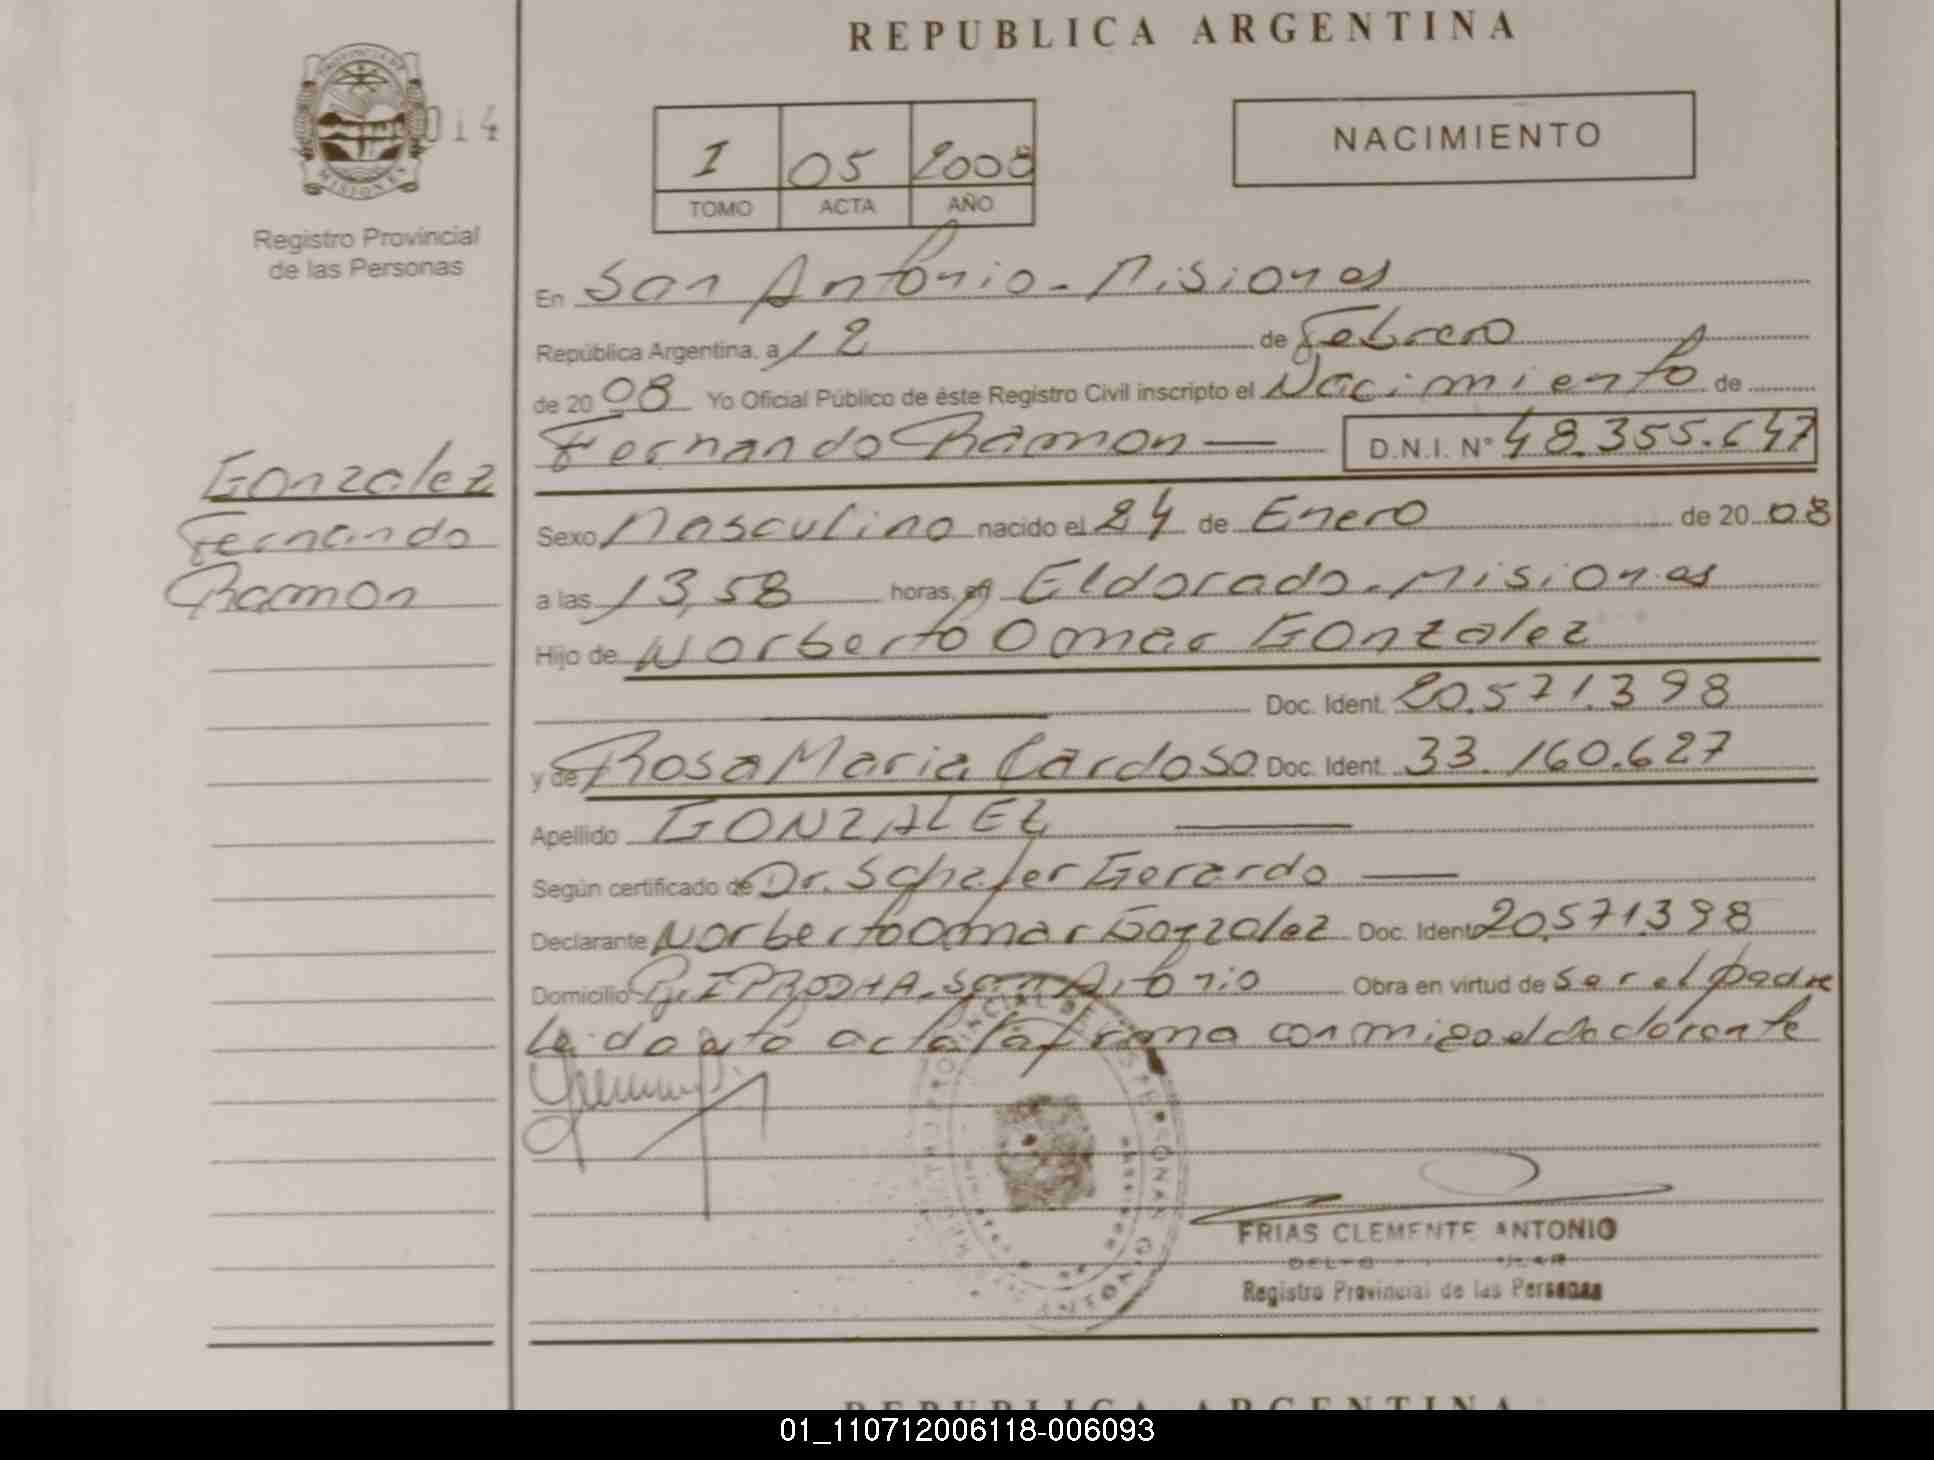 REPUBLICA ARGENTINA
PROVINCIA DE
MISIONES
014
Registro Provincial
de las Personas
I 05 2008
TOMO ACTA AÑO
NACIMIENTO
En San Antonio - Misiones
República Argentina, a 12 de Febrero
de 2008 Yo Oficial Público de éste Registro Civil inscripto el Nacimiento de
Fernando Ramon D.N.I. N° 48.355.647
Gonzalez
Fernando
Ramon
Sexo Masculino nacido el 24 de Enero de 2008
a las 13,58 horas, en Eldorado - Misiones
Hijo de Norberto Omar Gonzalez
Doc. Ident. 20.571.398
y de Rosa Maria Cardoso Doc. Ident. 33.160.627
Apellido GONZALEZ
Según certificado de Dr. Schefer Gerardo
Declarante Norberto Omar Gonzalez Doc. Ident. 20.571.398
Domicilio IPRODHA - San Antonio Obra en virtud de ser el padre
Leida esta acta la firma conmigo el declarante
FRIAS CLEMENTE ANTONIO
Registro Provincial de las Personas
REPUBLICA ARGENTINA
01_110712006118-006093